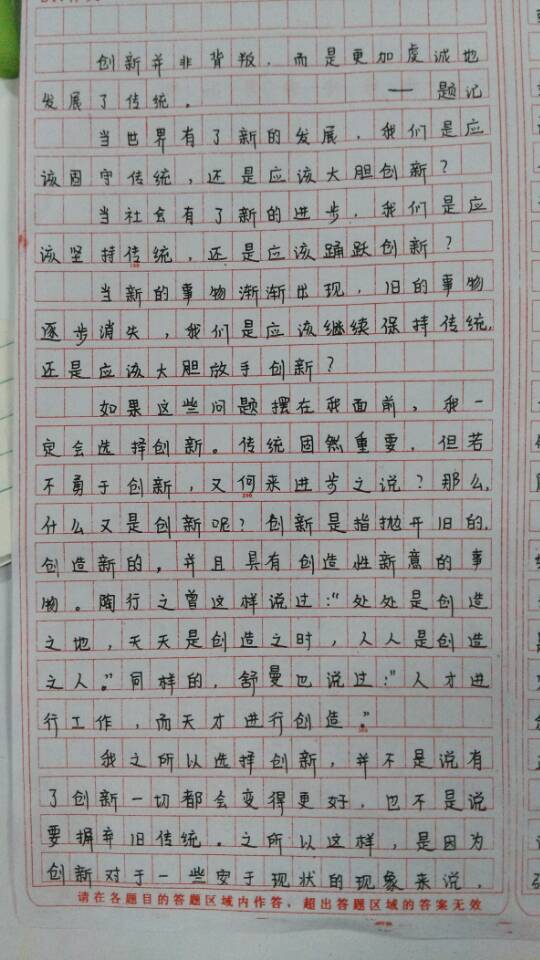 创新并非背叛，而是更加虔诚地
发展了传统。 —— 题记
当世界有了新的发展，我们是应
该固守传统，还是应该大胆创新？
当社会有了新的进步，我们是应
该坚持传统，还是应该踊跃创新？
当新的事物渐渐出现，旧的事物
逐步消失，我们是应该继续保持传统，
还是应该大胆放手创新？
如果这些问题摆在我面前，我一
定会选择创新。传统固然重要，但若
不勇于创新，又何来进步之说？那么，
什么又是创新呢？创新是指抛开旧的，
创造新的，并且具有创造性新意的事
物。陶行之曾这样说过：“处处是创造
之地，天天是创造之时，人人是创造
之人。”同样的，舒曼也说过：“人才进
行工作，而天才进行创造。”
我之所以选择创新，并不是说有
了创新一切都会变得更好，也不是说
要摒弃旧传统。之所以这样，是因为
创新对于一些安于现状的现象来说，
请在各题目的答题区域内作答，超出答题区域的答案无效